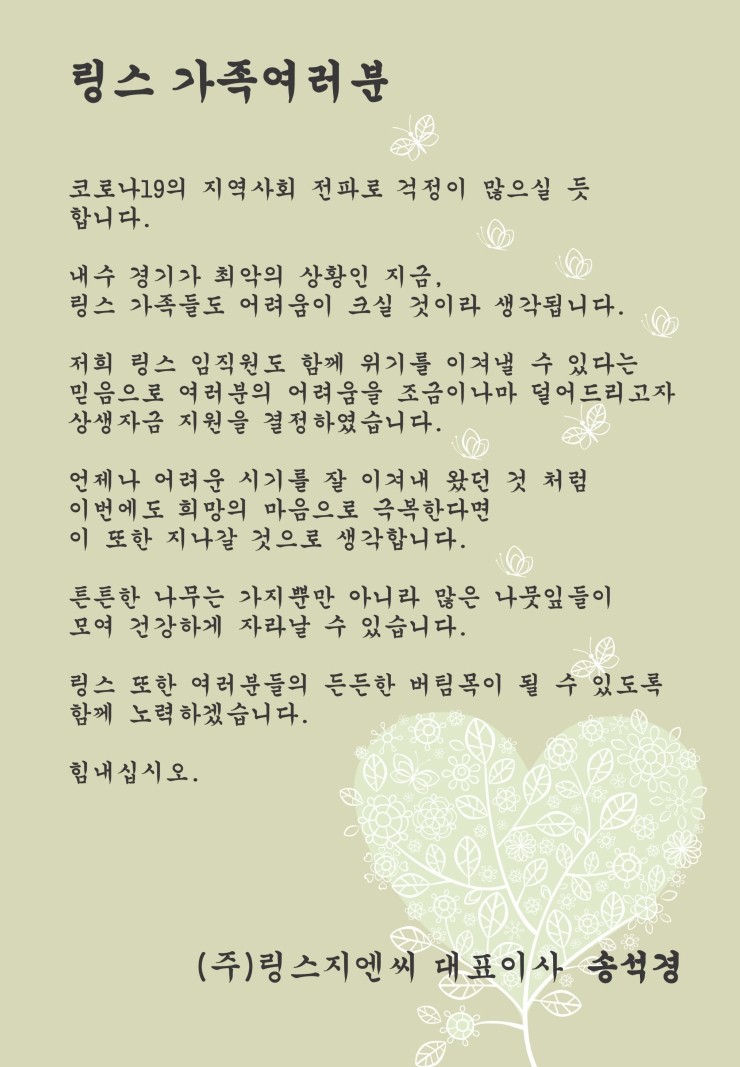 링스 가족여러분
코로나19의 지역사회 전파로 걱정이 많으실 듯
합니다.
내수 경기가 최악의 상황인 지금,
링스 가족들도 어려움이 크실 것이라 생각됩니다.
저희 링스 임직원도 함께 위기를 이겨낼 수 있다는
믿음으로 여러분의 어려움을 조금이나마 덜어드리고자
상생자금 지원을 결정하였습니다.
언제나 어려운 시기를 잘 이겨내 왔던 것 처럼
이번에도 희망의 마음으로 극복한다면
이 또한 지나갈 것으로 생각합니다.
튼튼한 나무는 가지뿐만 아니라 많은 나뭇잎들이
모여 건강하게 자라날 수 있습니다.
링스 또한 여러분들의 든든한 버팀목이 될 수 있도록
함께 노력하겠습니다.
힘내십시오.
(주)링스지엔씨 대표이사 송석경